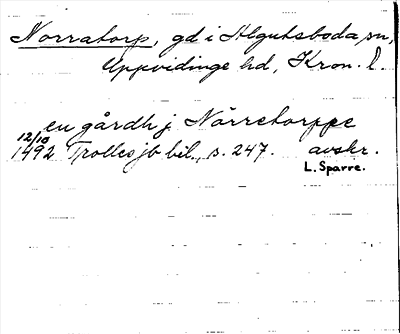 Norratorp, gd i Algutsboda sn,
Uppvidinge hd, Kron. l.
en gårdh j Nörretorppe
12/10 1492 Trolles jb bil., s. 247. avskr.
L. Sparre.